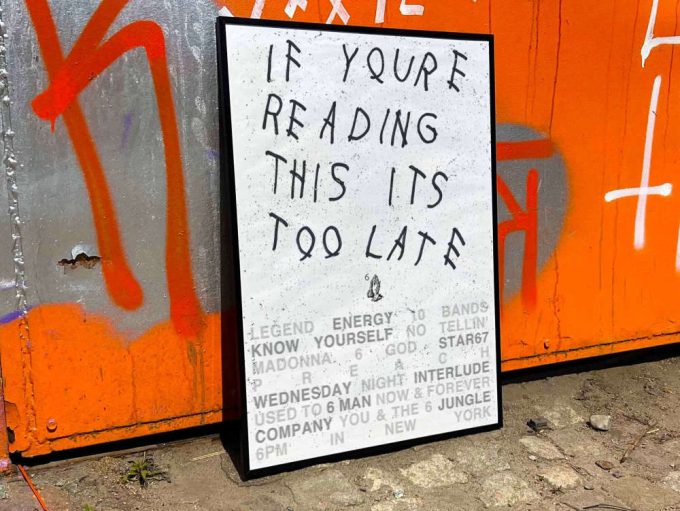 IF YOURE
READING
THIS ITS
TOO LATE
6
LEGEND ENERGY 10 BANDS
KNOW YOURSELF NO TELLIN'
MADONNA 6 GOD STAR67
PREACH
WEDNESDAY NIGHT INTERLUDE
USED TO 6 MAN NOW & FOREVER
COMPANY YOU & THE 6 JUNGLE
6PM IN NEW YORK